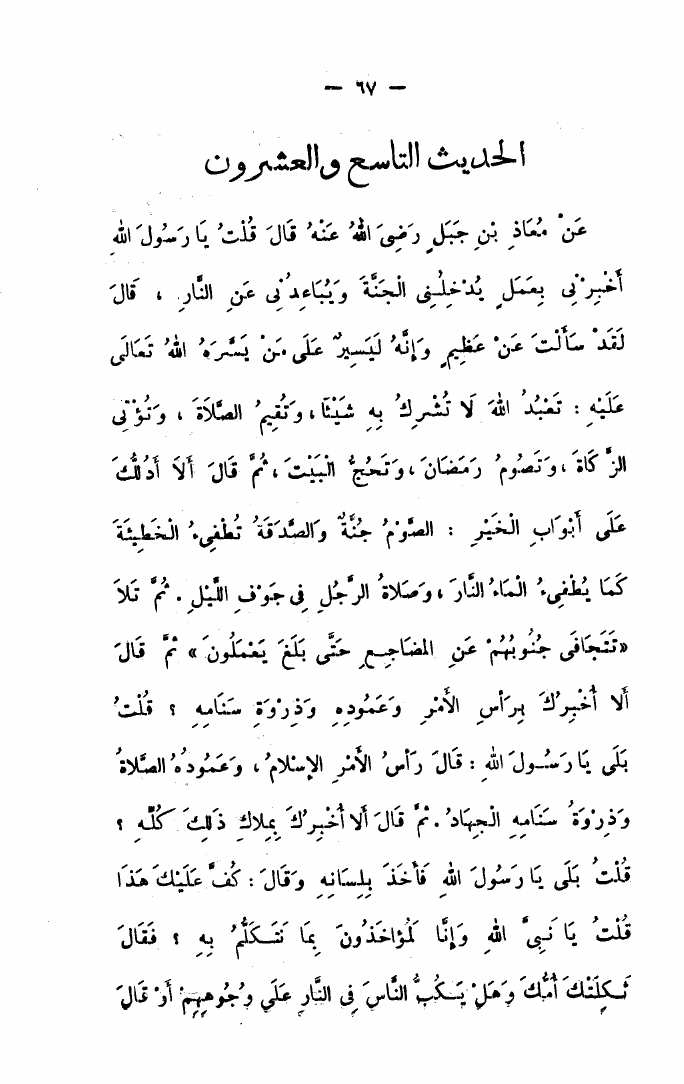 — ٦٧ —
الحديث التاسع والعشرون
عَنْ مُعَاذِ بْنِ جَبَلٍ رَضِىَ اللهُ عَنْهُ قَالَ قُلْتُ يَا رَسُولَ اللهِ
أَخْبِرْنِى بِعَمَلٍ يُدْخِلُنِى الْجَنَّةَ وَيُبَاعِدُنِى عَنِ النَّارِ ، قَالَ
لَقَدْ سَأَلْتَ عَنْ عَظِيمٍ وَإِنَّهُ لَيَسِيرٌ عَلَى مَنْ يَسَّرَهُ اللهُ تَعَالَى
عَلَيْهِ : تَعْبُدُ اللهَ لَا تُشْرِكُ بِهِ شَيْئًا ، وَتُقِيمُ الصَّلَاةَ ، وَتُؤْتِى
الزَّكَاةَ ، وَتَصُومُ رَمَضَانَ ، وَتَحُجُّ الْبَيْتَ ، ثُمَّ قَالَ أَلَا أَدُلُّكَ
عَلَى أَبْوَابِ الْخَيْرِ : الصَّوْمُ جُنَّةٌ وَالصَّدَقَةُ تُطْفِىءُ الْخَطِيئَةَ
كَمَا يُطْفِىءُ الْمَاءُ النَّارَ ، وَصَلَاةُ الرَّجُلِ فِى جَوْفِ اللَّيْلِ . ثُمَّ تَلَا
«تَتَجَافَى جُنُوبُهُمْ عَنِ المَضَاجِعِ حَتَّى بَلَغَ يَعْمَلُونَ» ثُمَّ قَالَ
أَلَا أُخْبِرُكَ بِرَأْسِ الأَمْرِ وَعَمُودِهِ وَذِرْوَةِ سَنَامِهِ ؟ قُلْتُ
بَلَى يَا رَسُولَ اللهِ : قَالَ رَأْسُ الأَمْرِ الإِسْلَامُ ، وَعَمُودُهُ الصَّلَاةُ
وَذِرْوَةُ سَنَامِهِ الْجِهَادُ . ثُمَّ قَالَ أَلَا أُخْبِرُكَ بِمِلَاكِ ذَلِكَ كُلِّهِ ؟
قُلْتُ بَلَى يَا رَسُولَ اللهِ فَأَخَذَ بِلِسَانِهِ وَقَالَ : كُفَّ عَلَيْكَ هَذَا
قُلْتُ يَا نَبِىَّ اللهِ وَإِنَّا لَمُؤَاخَذُونَ بِمَا نَتَكَلَّمُ بِهِ ؟ فَقَالَ
ثَكِلَتْكَ أُمُّكَ وَهَلْ يَكُبُّ النَّاسَ فِى النَّارِ عَلَى وُجُوهِهِمْ أَوْ قَالَ